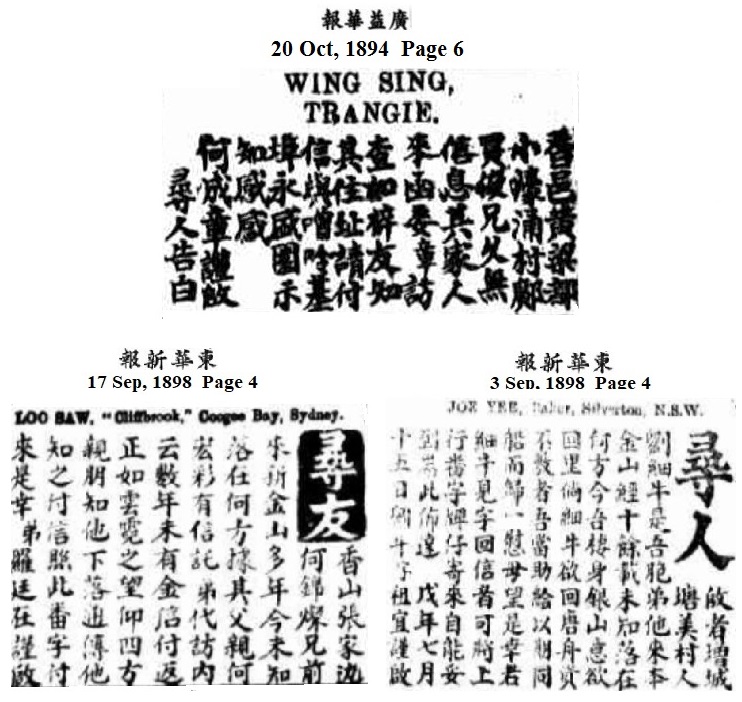 廣益華報
20 Oct, 1894 Page 6
WING SING,
TRANGIE.
香邑黃梁都
小濠涌村鄺
賈兄久無
信息其家人
來函委章訪
查如梓友知
其住址請付
信與噌吟基
埠永盛園示
知感感
何成章謹啟
尋人告白
東華新報
17 Sep, 1898 Page 4
LOO SAW, "Cliffbrook," Coogee Bay, Sydney.
尋友
香山張家边
何錦燦兄前
來新金山多年今未知
落在何方據其父親何
宏彩有信託弟代訪內
云數年未有金信付返
正如雲霓之望仰四方
親朋知他下落進傳他
知之付信照此番字付
來是幸 弟羅廷在謹啟
東華新報
3 Sep, 1898 Page 4
JOE YEE, Baker, Silverton, N.S.W.
尋人
啟者增城
塘美村人
劉細牛是吾胞弟他來本
金山經十餘載未知落在
何方今吾棲身銀山意欲
回里倘細牛欲回唐舟資
不敷者吾當助給以期同
船而歸一慰母望是幸若
細牛見字回信者可將上
行番字仔寄來自能妥
到耑此佈達 戊年七月
十五日 祖宜謹啟